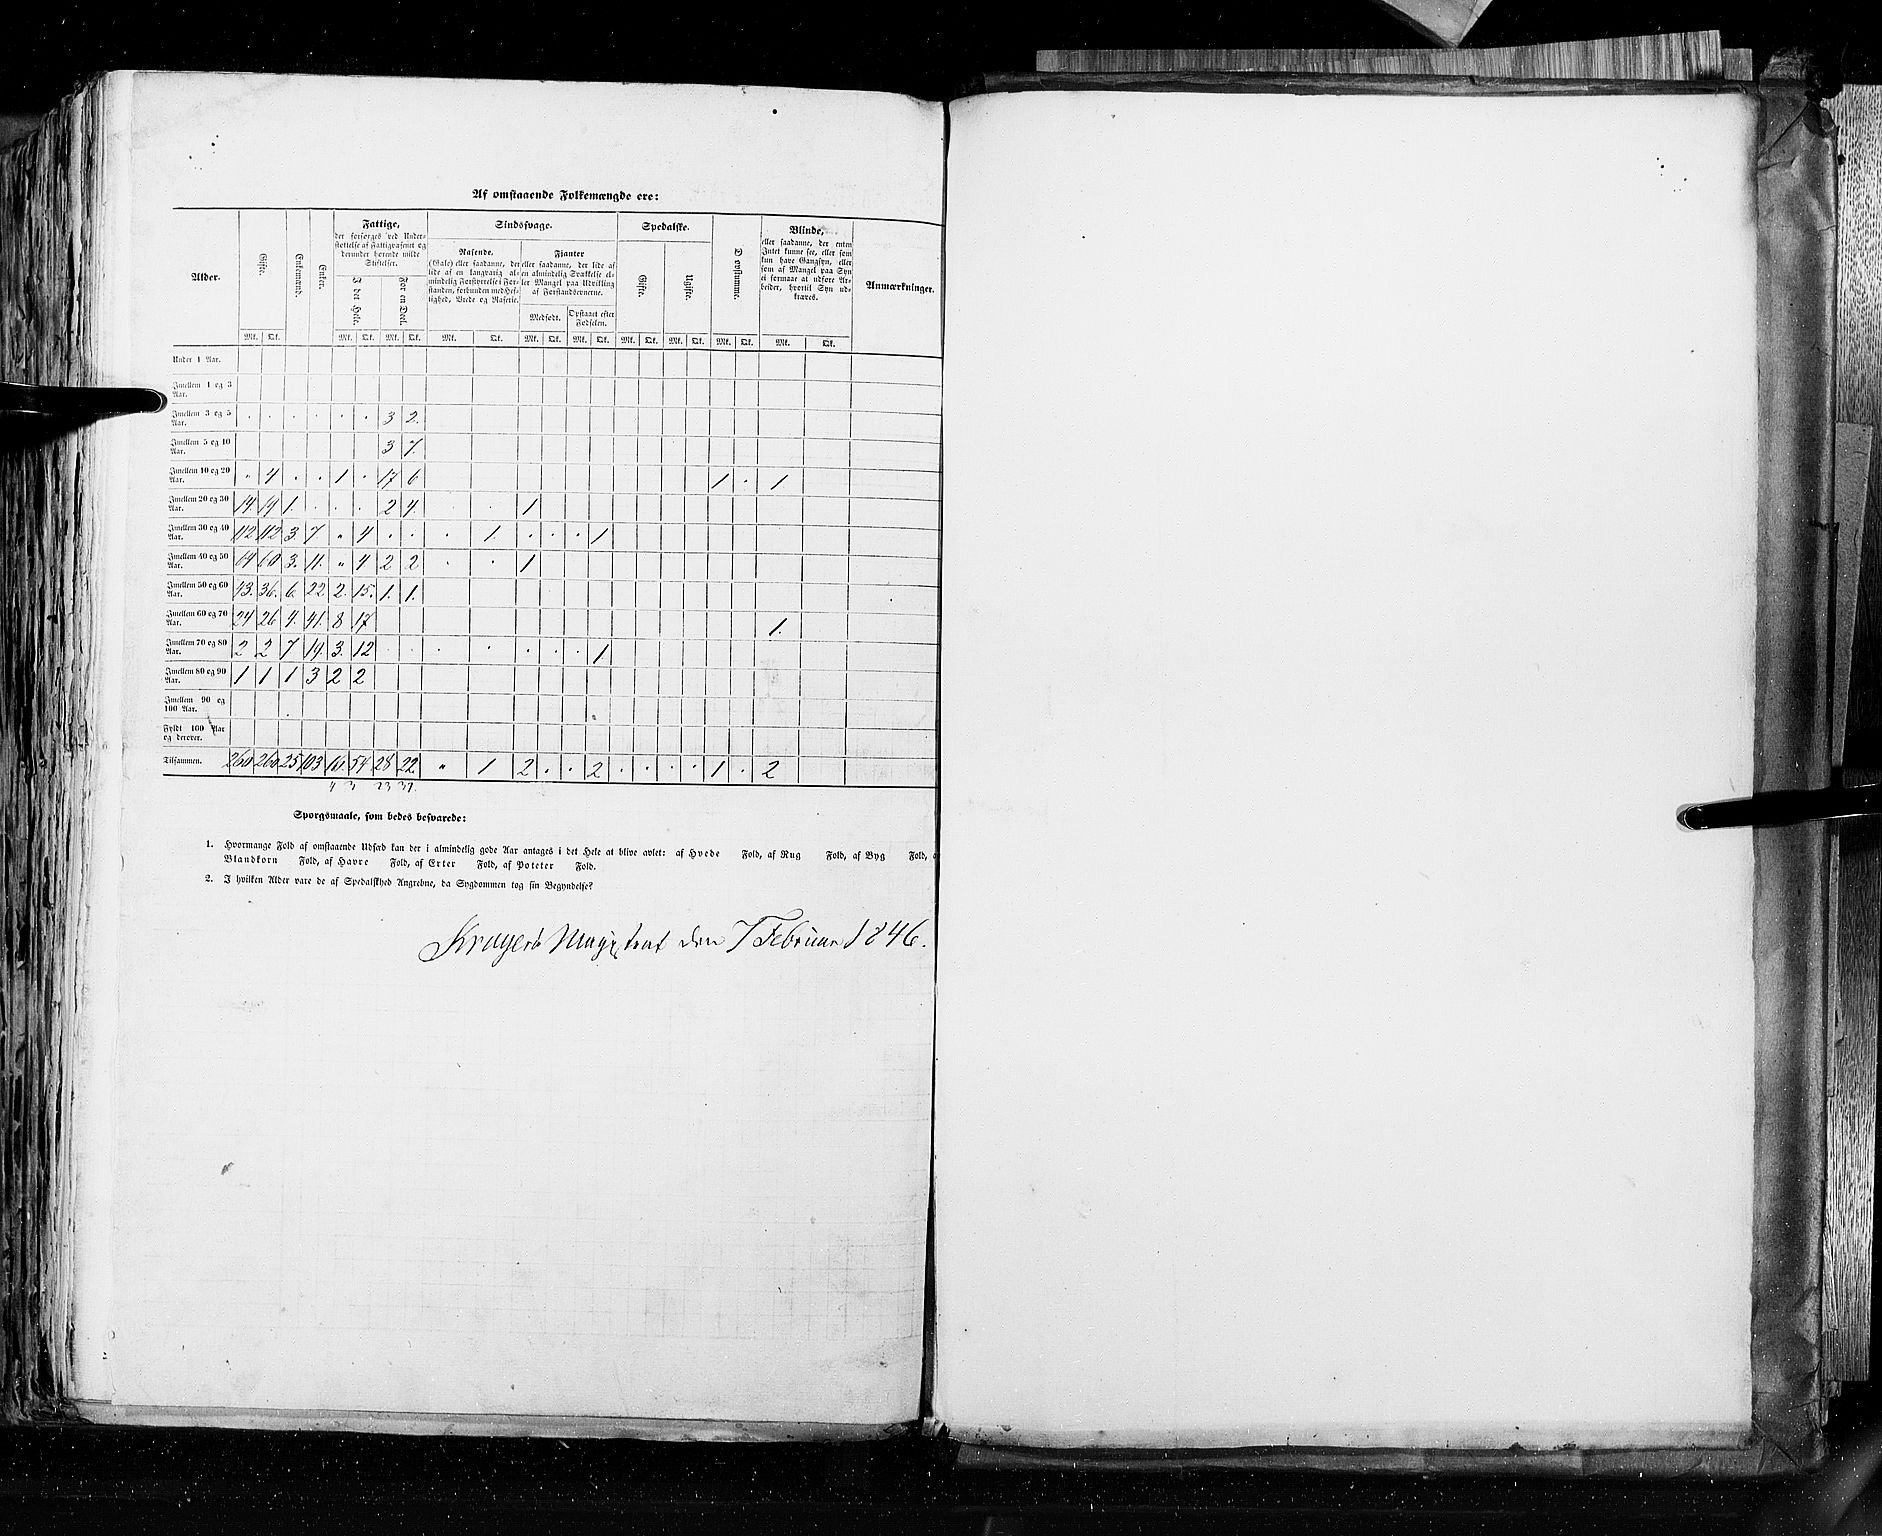 Af omstaaende Folkemængde ere:
Alder. Gifte. Enkemænd. Enker. Fattige, Sindssvage. Spedalske. Døvstumme. Blinde, Anmærkninger.
der forsørges ved Under-
støttelse af Fattigvæsenet og
derunder hørende milde
Stiftelser.
I det Hele. For en Deel.
Rasende,
(Gale) eller saadanne, der
lide af en langvarig al-
mindelig Forstyrrelse i For-
standen, forbunden med Hef-
tighed, Vrede og Raserie.
Fjanter
eller saadanne, der lide af
en almindelig Svækkelse el-
ler Mangel paa Udvikling
af Forstandsevnerne.
Medfødt. Opstaaet efter
Fødselen.
Gifte. Ugifte.
eller saadanne, der enten
Intet kunne see, eller som
kun have Gangsyn, eller
som af Mangel paa Syn
ei formaae at udføre Ar-
beider, hvortil Syn ud-
kræves.
Mk. Qk. Mk. Qk. Mk. Qk. Mk. Qk. Mk. Qk. Mk. Qk. Mk. Qk. Mk. Qk. Mk. Qk. Mk. Qk.
Under 1 Aar.
Imellem 1 og 3
Aar.
Imellem 3 og 5 . . . . . . 3 2.
Aar.
Imellem 5 og 10 3 7.
Aar.
Imellem 10 og 20 " 4 . . 1 . 17 6 1 . 1
Aar.
Imellem 20 og 30 14 19 1. . . . 2 4. . . 1
Aar.
Imellem 30 og 40 112 112 3. 7 " 4 . . . 1. . . . 1
Aar.
Imellem 40 og 50 64 60 3. 11. " 4 2 2 . . 1
Aar.
Imellem 50 og 60 43. 36. 6. 22 2. 15. 1. 1.
Aar.
Imellem 60 og 70 24 26 4. 41. 8 17 1.
Aar.
Imellem 70 og 80 2 2 7 19. 3. 12 . . . . . . . 1
Aar.
Imellem 80 og 90 1 1 1 3 2 2
Aar.
Imellem 90 og
100 Aar.
Fyldt 100 Aar
og derover.
Tilsammen. 260 260 25 103 16. 54 28 22 " 1 2 . . 2 . . . . 1 . 2
Spørgsmaale, som bedes besvarede:
1. Hvormange Fold af omstaaende Udsæd kan der i almindelig gode Aar antages i det Hele at blive avlet: af Hvede Fold, af Rug Fold, af Byg Fold,
Blandkorn Fold, af Havre Fold, af Erter Fold, af Poteter Fold.
2. I hvilken Alder vare de af Spedalskhed Angrebne, da Sygdommen tog sin Begyndelse?
Kragerö Magistrat den 7 Februar 1846.